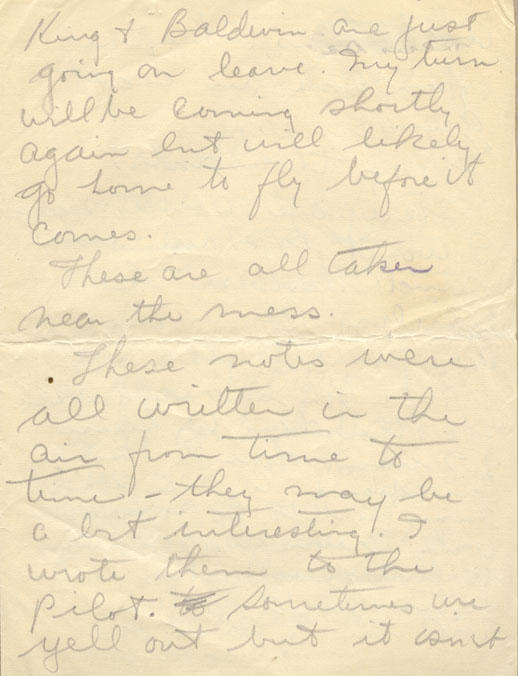 King & Baldwin are just
going on leave. My turn
will be coming shortly
again but will likely
go home to fly before it
comes.
These are all taken
near the mess.
These notes were
all written in the
air from time to
time - they may be
a bit interesting. I
wrote them to the
pilot. to sometimes we
yell out but it isn't